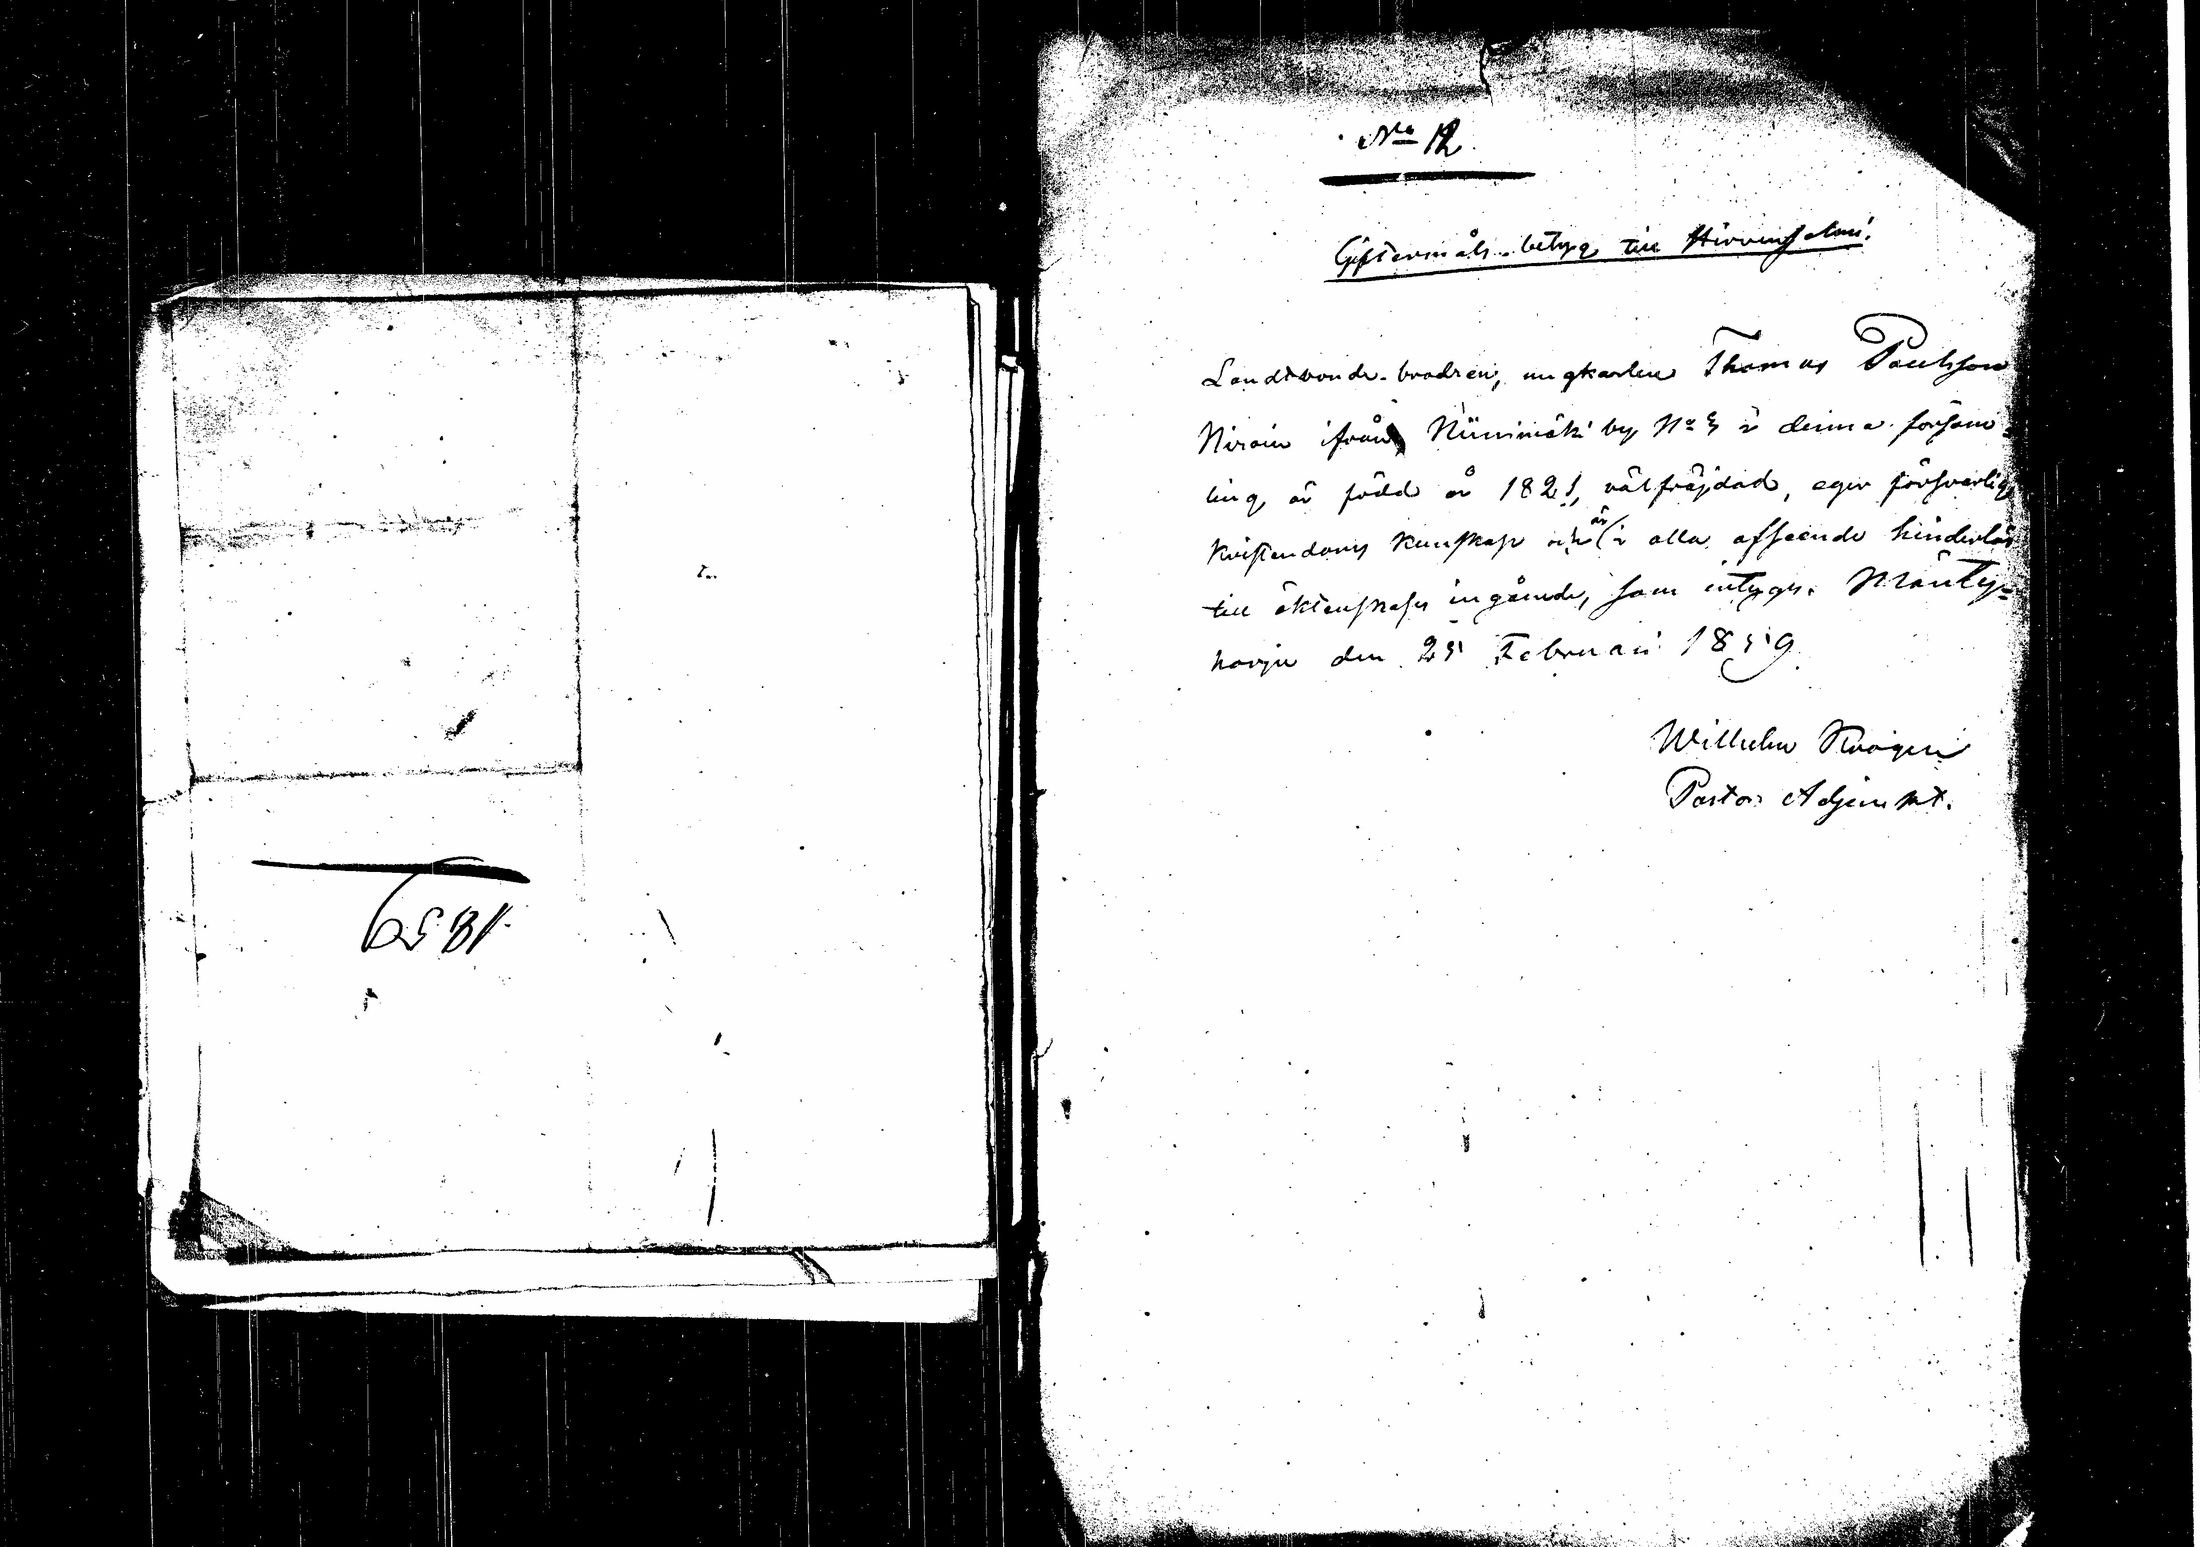 1859
No 12
Giftermåls-betyg till Hirvensalmi.
Landtbonde-brodren, ungkarlen Thomas Paulsson
ifrån Niinimäki by No 5 i denna försam-
ling, är född år 1821, välfräjdad, eger försvarlig
kristendoms kunskap och är i alla afseende hinderlös
till äktenskaps ingående, som intygas. Mänty-
harju den 25 Februari 1859.
Wilhelm
Pastors Adjunkt.